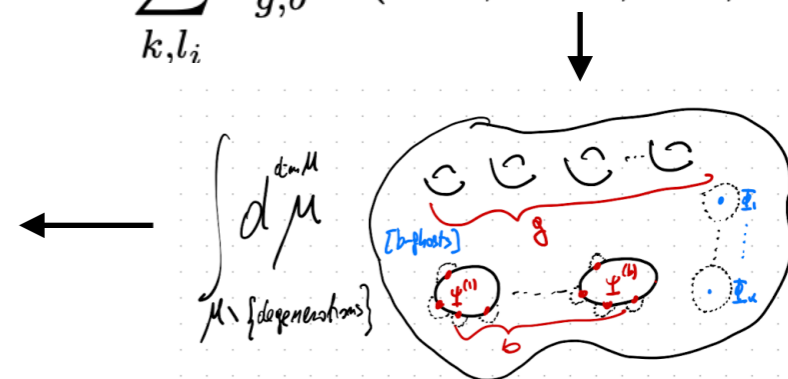 k,l_i
∫ d^{dim M} μ
M \ {degenerations}
[b-ghosts]
g
Φ_1
Ψ^{(1)}
Ψ^{(b)}
b